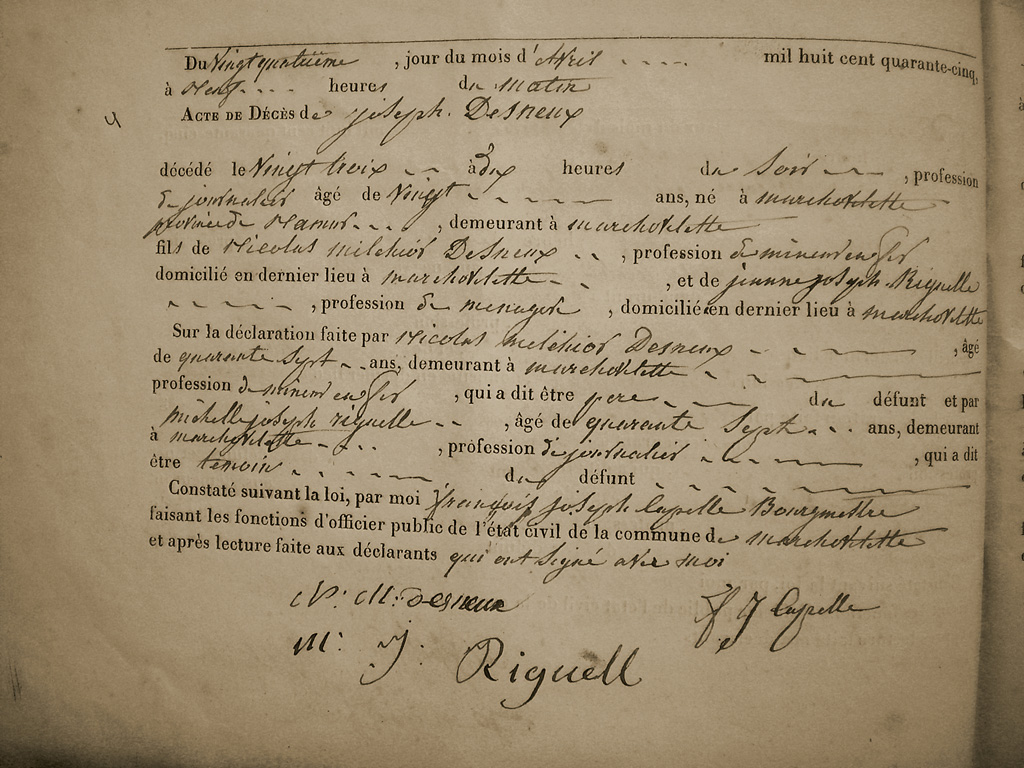 Du Vingt quatrième , jour du mois d'Avril mil huit cent quarante-cinq,
à Neuf heures du matin
4 ACTE DE DÉCÈS de joseph. Desneux
décédé le Vingt trois à dix heures du Soir , profession
de journalier âgé de Vingt ans, né à marchovelette
province de Namur , demeurant à marchovelette
fils de Nicolas milchior Desneux , profession de mineur en fer
domicilié en dernier lieu à marchovelette , et de jeanne joseph Riguelle
, profession de menagere , domiciliée en dernier lieu à marchovelette
Sur la déclaration faite par Nicolas melchior Desneux , âgé
de quarante Sept ans, demeurant à marchovelette
profession de mineur en fer , qui a dit être pere du défunt et par
michelle joseph riguelle , âgé de quarante Sept ans, demeurant
à marchovelette , profession de journalier , qui a dit
être temoin du défunt
Constaté suivant la loi, par moi françois joseph Capelle Bourgmestre
faisant les fonctions d'officier public de l'état civil de la commune de marchovelette
et après lecture faite aux déclarants qui ont Signé avec moi
N. M. Desneux F J Capelle
M. J. Riguell